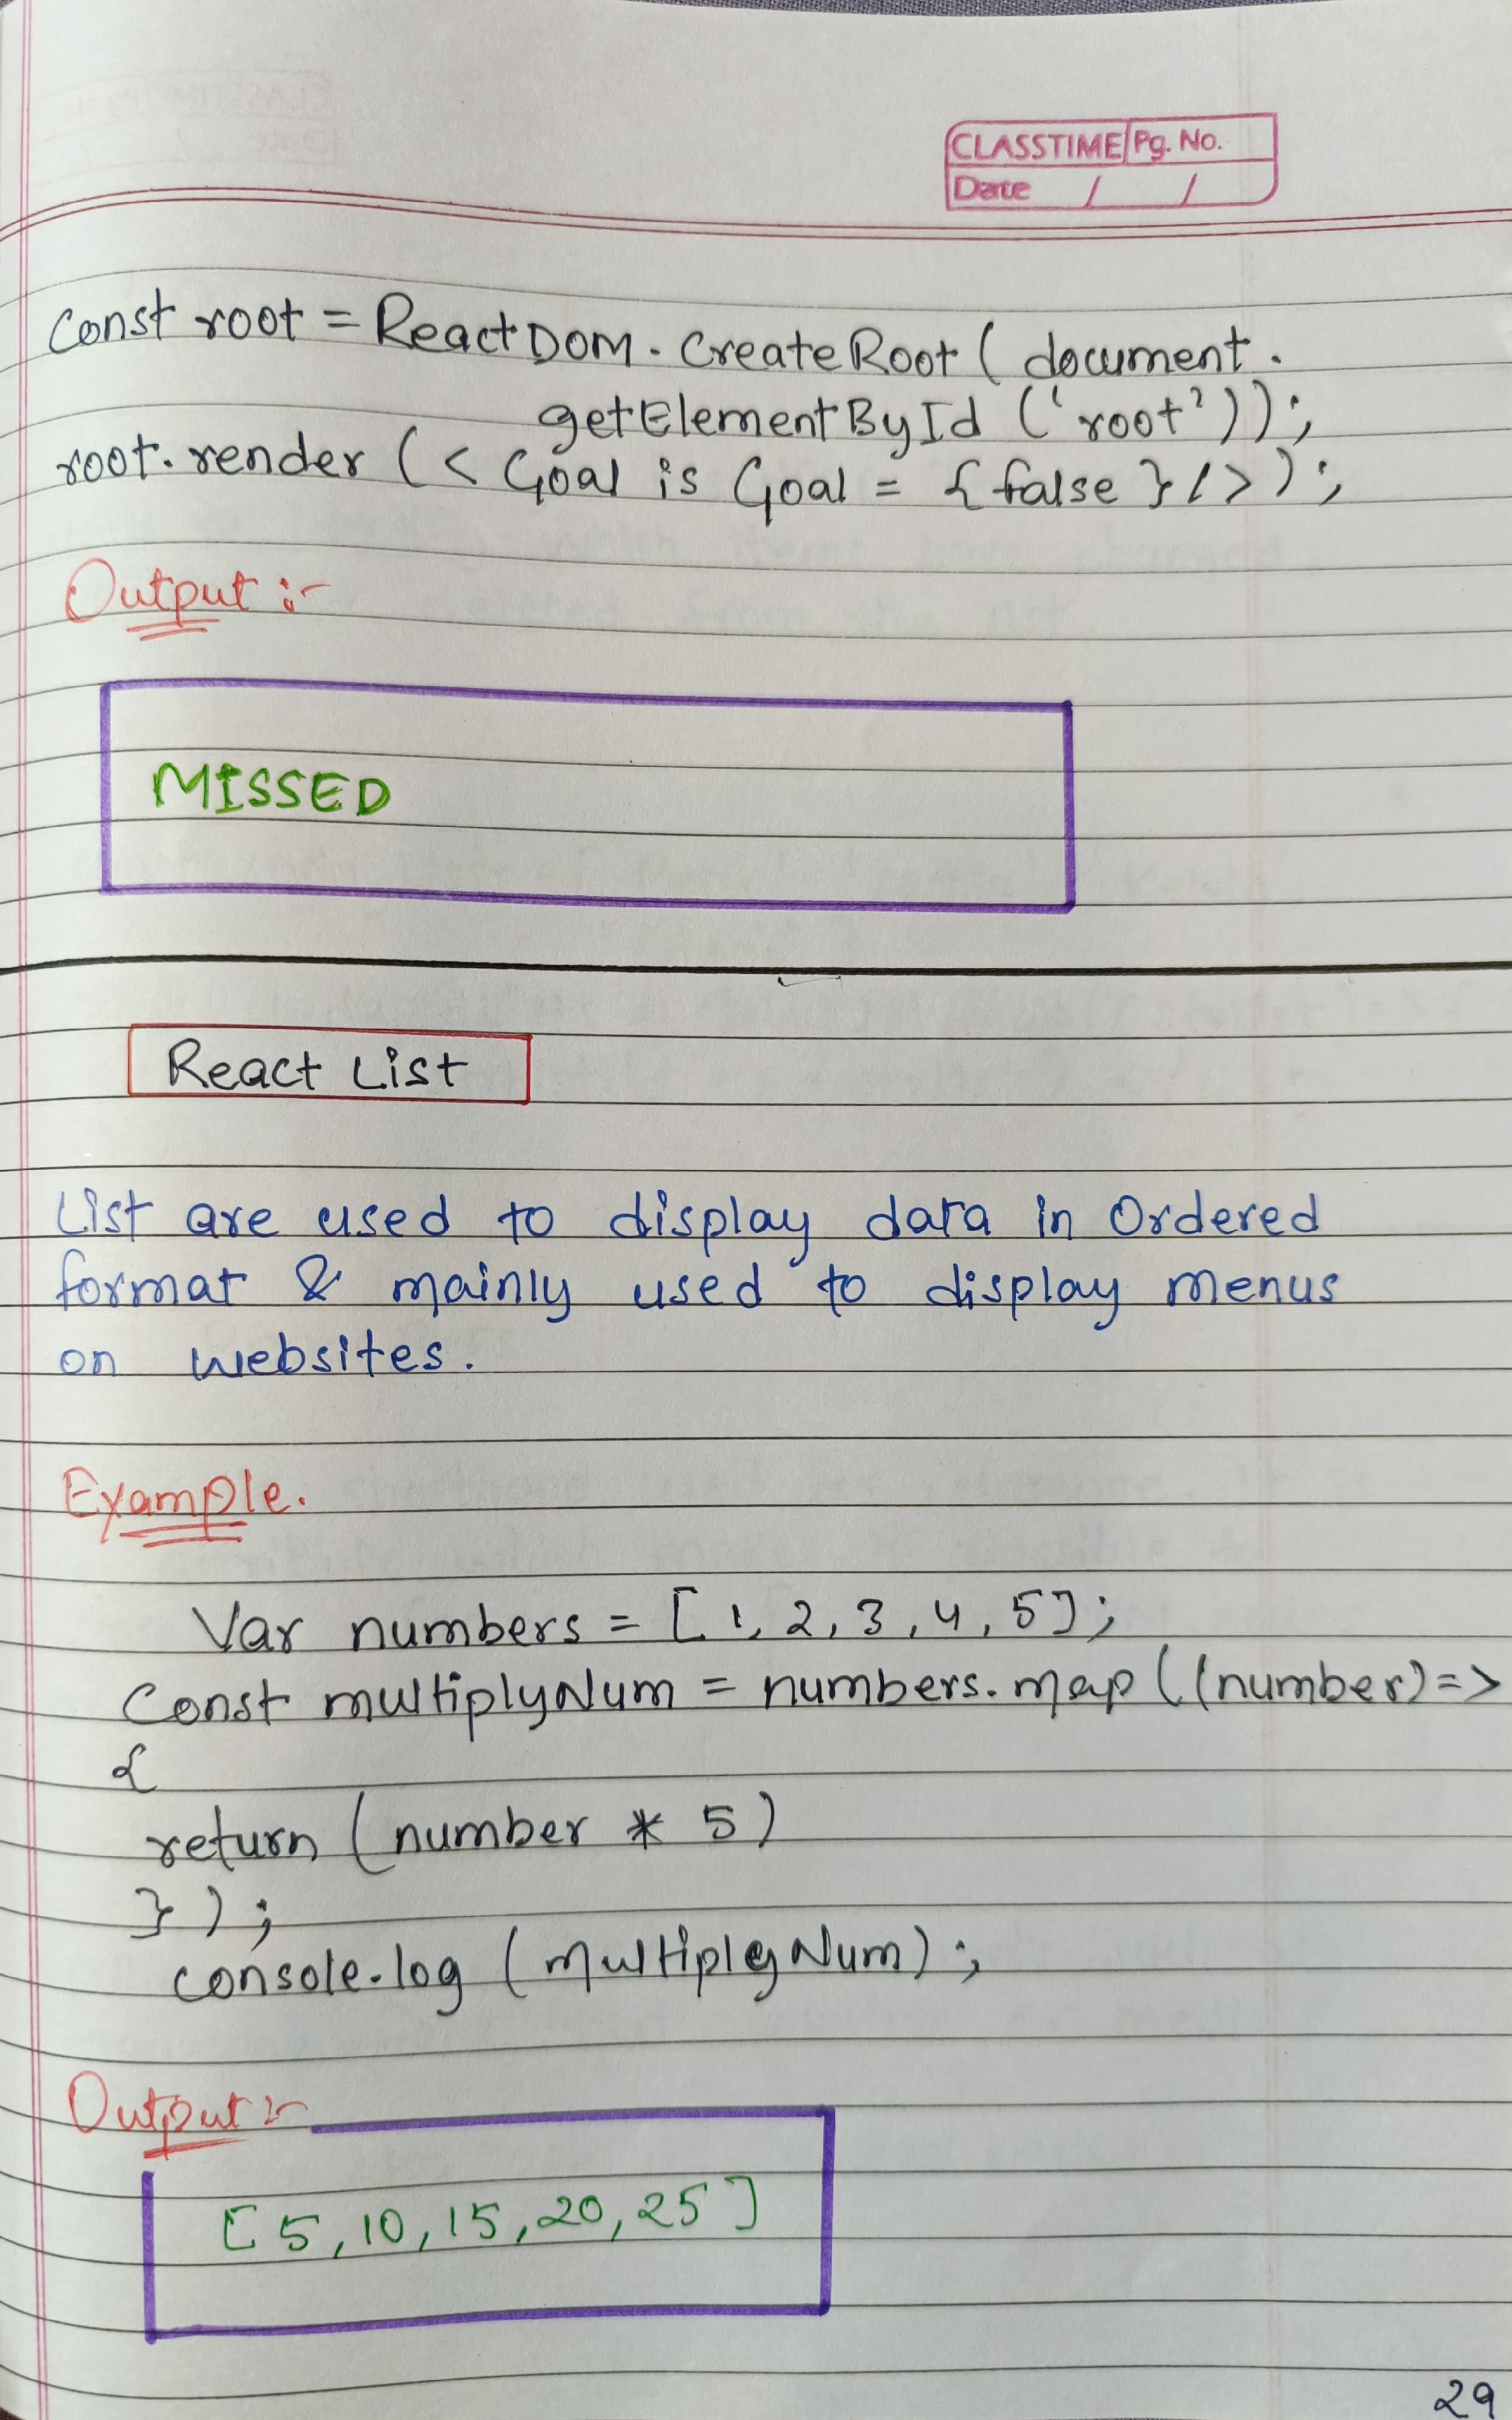 CLASSTIME Pg. No.
Date / /
const root = ReactDOM.createRoot( document.
getElementById ('root'));
root.render (< Goal is Goal = {false} />);
Output :-
MISSED
React List
List are used to display data in Ordered
format & mainly used to display menus
on websites.
Example.
Var numbers = [1, 2, 3, 4, 5];
Const multiplyNum = numbers.map((number)=>
{
return (number * 5)
});
console.log (multiplyNum);
Output :-
[5, 10, 15, 20, 25]
29